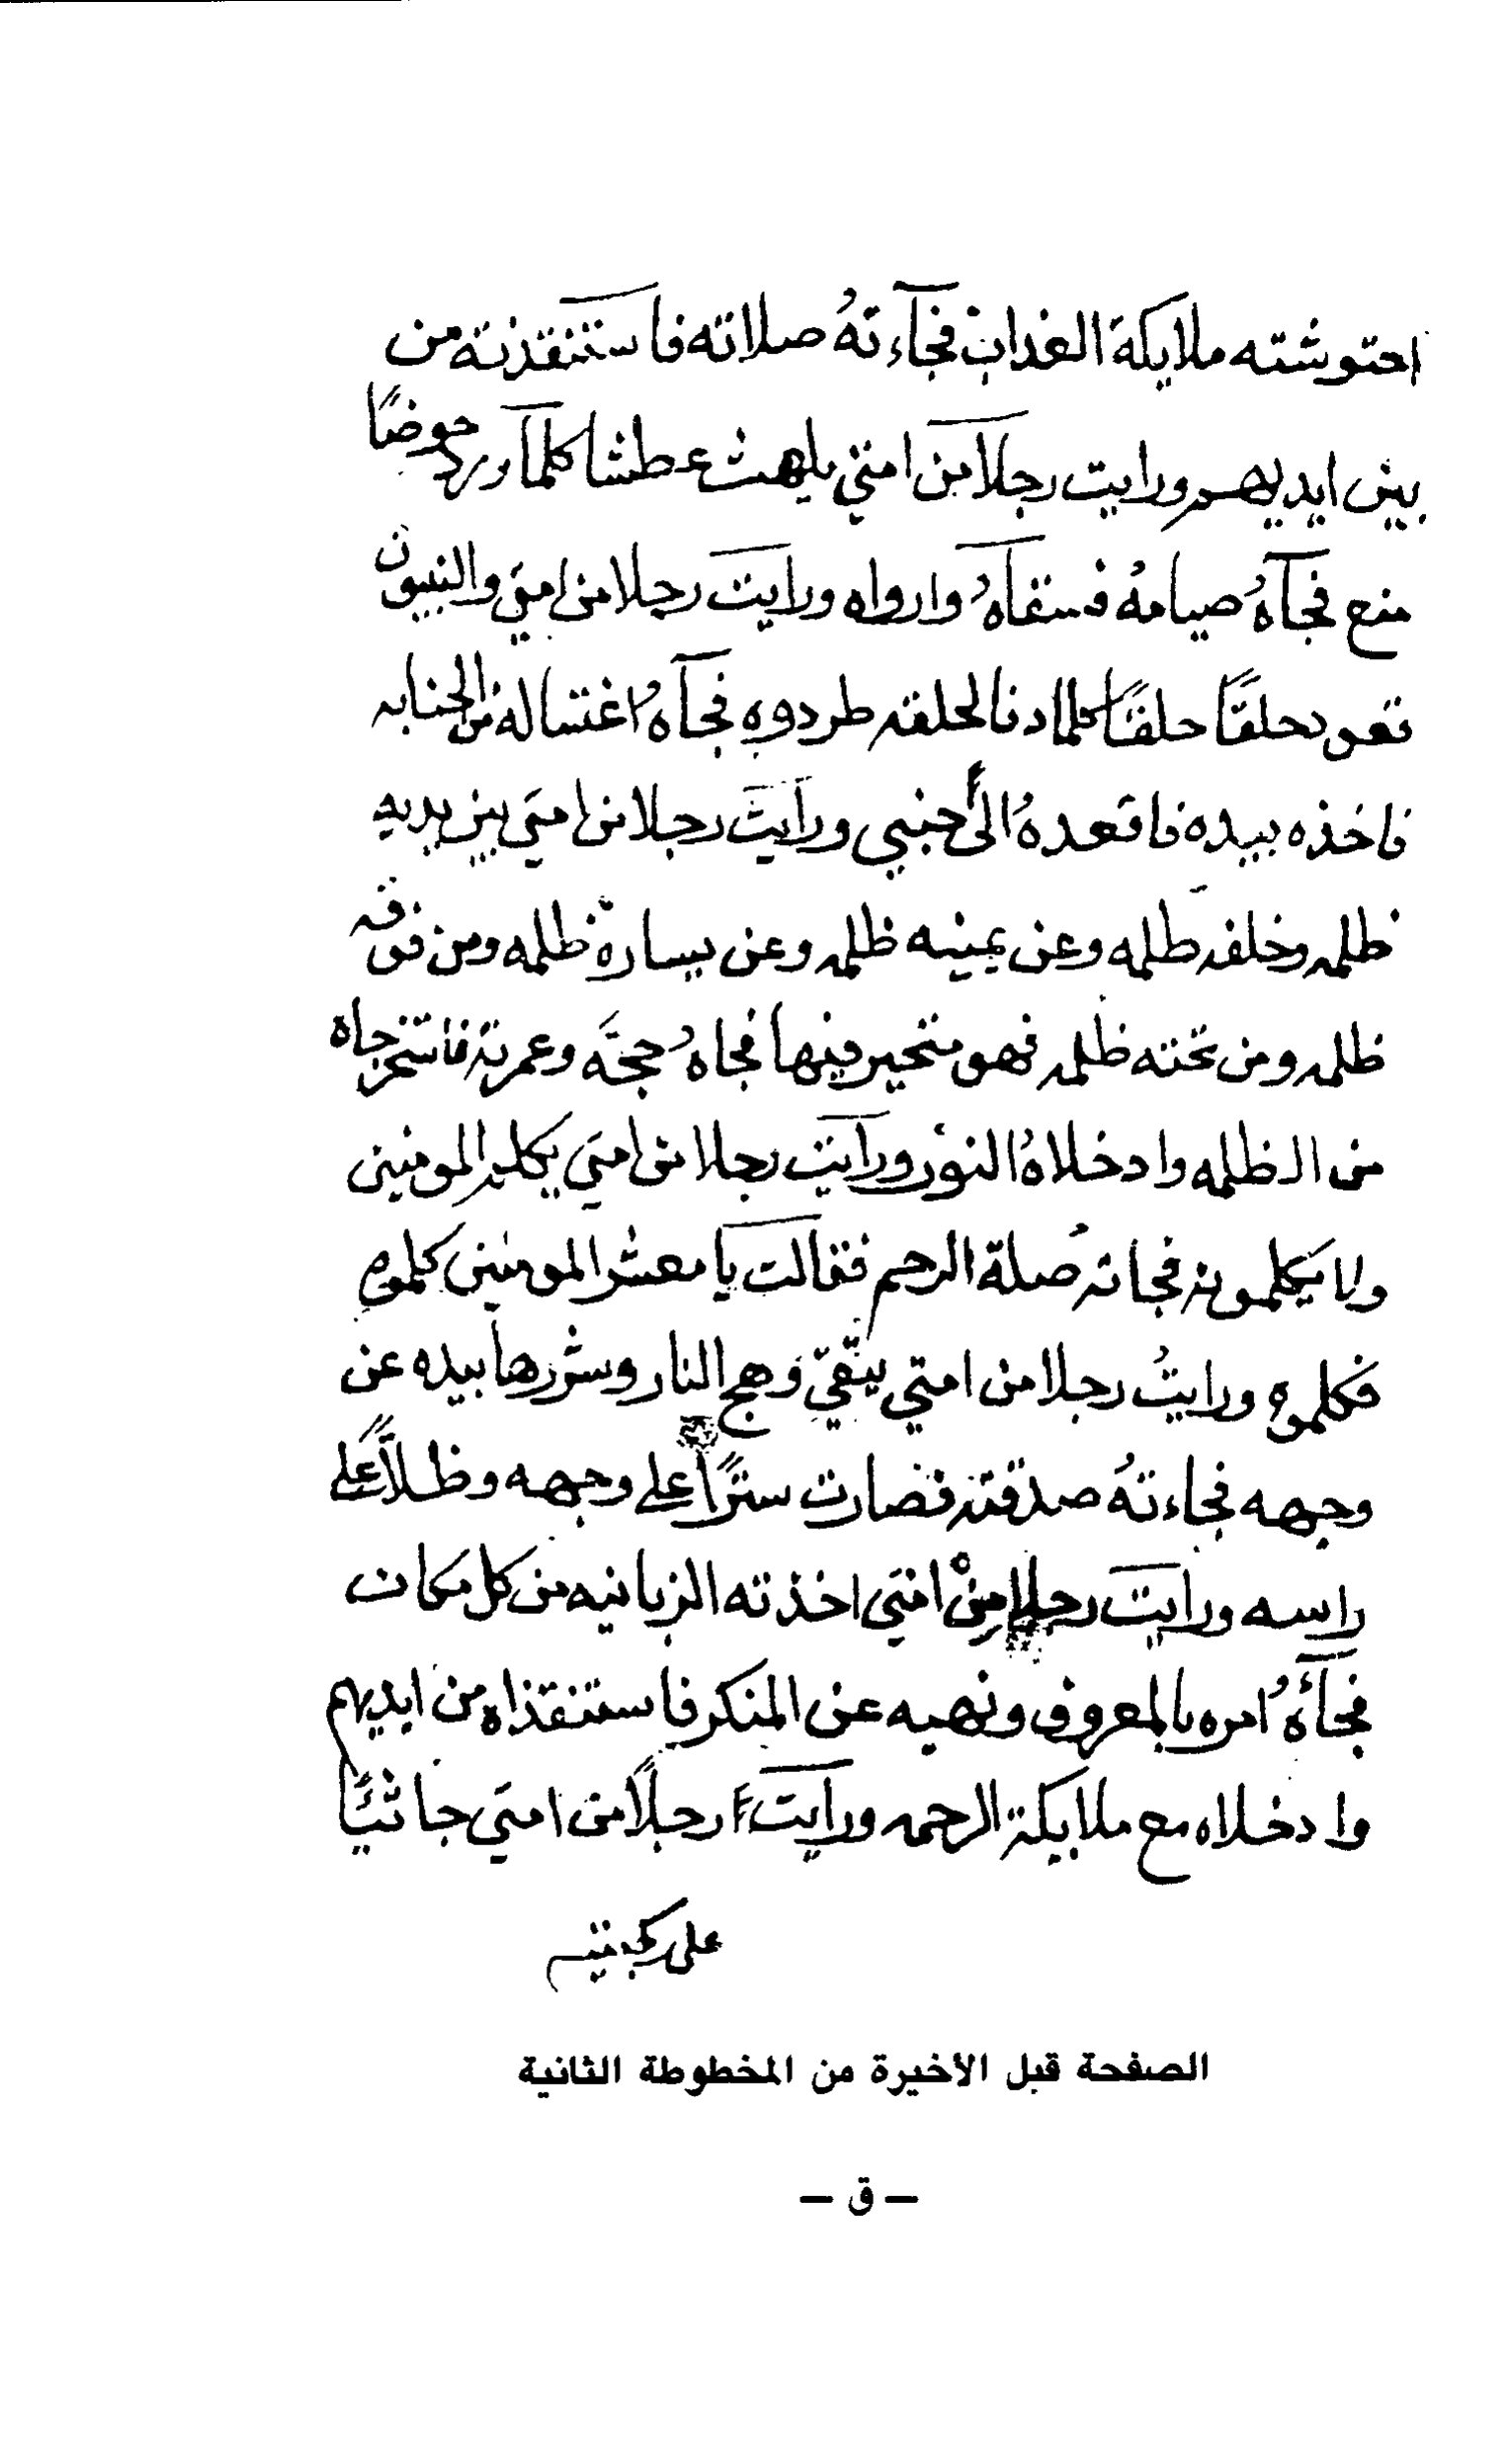 احتوشته ملايكة العذاب فجآءتهُ صلاته فاستنقذته من
بين ايديهم ورايت رجلا من امتي يلهث عطشا كلمآ ورد حوضًا
منع فجآهُ صيامهُ فسقاهُ وارواه ورايت رجلا من امتي والنبيون
قعود حلقًا حلقًا كلما دنا لحلقه طردوه فجآهُ اغتساله من الجنابه
فاخذه بيده فاقعدهُ الى جنبي ورايت رجلا من امتي بين يديه
ظلمه وخلفه ظلمه وعن يمينه ظلمه وعن يساره ظلمه ومن فوقه
ظلمه ومن تحته ظلمه فهو متحير فيها فجاهُ حجتَه وعمرته فاستخرجاه
من الظلمه وادخلاهُ النور ورايت رجلا من امتي يكلم المومنين
ولا يكلمونه فجاته صُلة الرحم فقالت يا معشر المومنين كلموه
فكلموه ورايتُ رجلا من امتي يتّقيّ وَهج النار وشررها بيده عن
وجهه فجاءتهُ صدقته فصارت سترًا على وجهه وظلاً على
راسه ورايت رجلا منْ امتي اخذته الزبانيه من كل مكان
فجآهُ امره بالمعروف ونهيه عن المنكر فاستنقذاه من ايديهم
وادخلاه مع ملايكة الرحمه ورايت رجلًا من امتي جاثيًا
على ركبتيه
الصفحة قبل الأخيرة من المخطوطة الثانية
– ق –